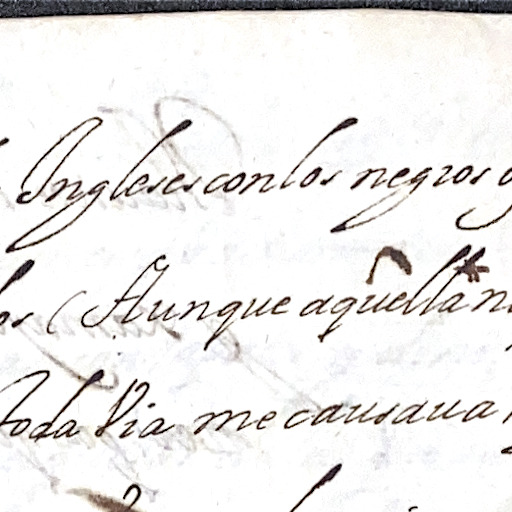 Ingleses con los negros
os (Aunque aquella
toda Via me causaua